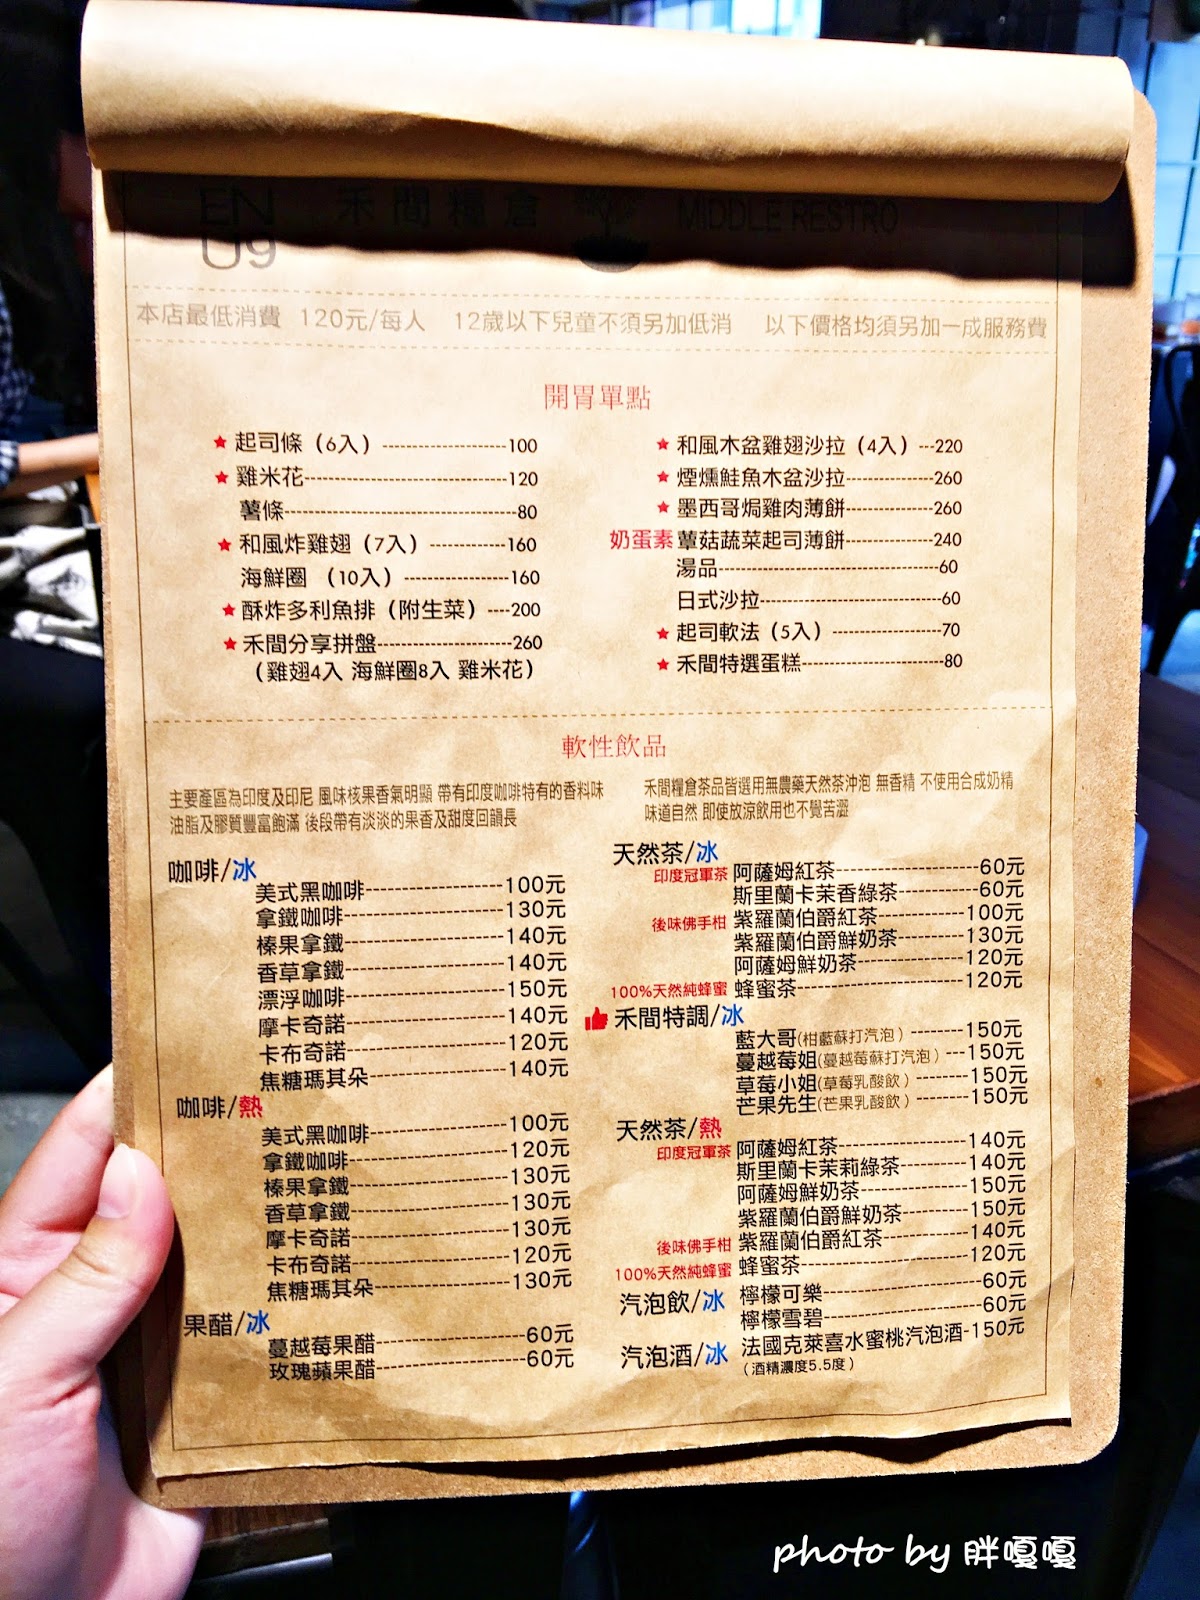 EN
U9
禾間糧倉
MIDDLE RESTRO
本店最低消費 120元/每人 12歲以下兒童不須另加低消 以下價格均須另加一成服務費
開胃單點
★ 起司條（6入）--------------------100
★ 雞米花--------------------120
薯條--------------------80
★ 和風炸雞翅（7入）------------160
海鮮圈 （10入）----------------160
★ 酥炸多利魚排（附生菜）----200
★ 禾間分享拼盤--------------------260
（雞翅4入 海鮮圈8入 雞米花）
★ 和風木盆雞翅沙拉（4入）---220
★ 煙燻鮭魚木盆沙拉--------------260
★ 墨西哥焗雞肉薄餅--------------260
奶蛋素 蕈菇蔬菜起司薄餅--------------240
湯品--------------------60
日式沙拉--------------------60
★ 起司軟法（5入）------------------70
★ 禾間特選蛋糕--------------------80
軟性飲品
主要產區為印度及印尼 風味核果香氣明顯 帶有印度咖啡特有的香料味
油脂及膠質豐富飽滿 後段帶有淡淡的果香及甜度回韻長
咖啡/冰
美式黑咖啡--------------------100元
拿鐵咖啡--------------------130元
榛果拿鐵--------------------140元
香草拿鐵--------------------140元
漂浮咖啡--------------------150元
摩卡奇諾--------------------140元
卡布奇諾--------------------120元
焦糖瑪其朵--------------------140元
咖啡/熱
美式黑咖啡--------------------100元
拿鐵咖啡--------------------120元
榛果拿鐵--------------------130元
香草拿鐵--------------------130元
摩卡奇諾--------------------130元
卡布奇諾--------------------120元
焦糖瑪其朵--------------------130元
果醋/冰
蔓越莓果醋--------------------60元
玫瑰蘋果醋--------------------60元
禾間糧倉茶品皆選用無農藥天然茶沖泡 無香精 不使用合成奶精
味道自然 即使放涼飲用也不覺苦澀
天然茶/冰
印度冠軍茶 阿薩姆紅茶--------------------60元
斯里蘭卡茉香綠茶------------60元
後味佛手柑 紫羅蘭伯爵紅茶------------100元
紫羅蘭伯爵鮮奶茶----------130元
阿薩姆鮮奶茶----------------120元
100%天然純蜂蜜 蜂蜜茶--------------------120元
禾間特調/冰
藍大哥(柑藍蘇打汽泡)--------150元
蔓越莓姐(蔓越莓蘇打汽泡)---150元
草莓小姐(草莓乳酸飲)--------150元
芒果先生(芒果乳酸飲)--------150元
天然茶/熱
印度冠軍茶 阿薩姆紅茶------------------140元
斯里蘭卡茉莉綠茶----------140元
阿薩姆鮮奶茶----------------150元
紫羅蘭伯爵鮮奶茶----------150元
後味佛手柑 紫羅蘭伯爵紅茶------------140元
100%天然純蜂蜜 蜂蜜茶--------------------120元
汽泡飲/冰 檸檬可樂--------------------60元
檸檬雪碧--------------------60元
汽泡酒/冰 法國克萊喜水蜜桃汽泡酒-150元
（酒精濃度5.5度）
photo by 胖嘎嘎